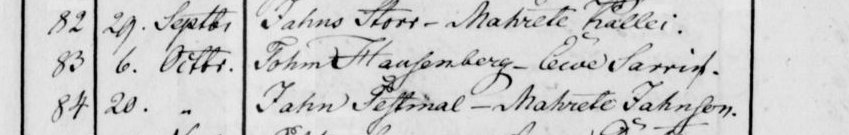 82 29. Septbr Jahns Storr - Mahrete Kallei.
83 6. Octbr. Tohm Hausenberg - Eewe Sarrin.
84 20. " Jahn Pestmal - Mahrete Jahnson.